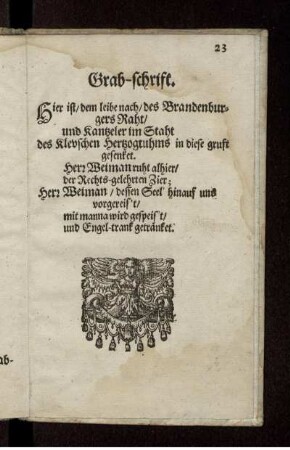 23
Grab-schrift.
Hier ist / dem leibe nach / des Brandenbur-
gers Raht /
und Kantzeler im Staht
des Klevschen Hertzogtuhms in diese gruft
gesenket.
Herz Weiman ruht alhier /
der Rechts-gelehrten Zier;
Herz Weiman / dessen Seel' hinauf uns
vorgereis't /
mit manna wird gespeis't /
und Engel-trank geträncket.
ab-